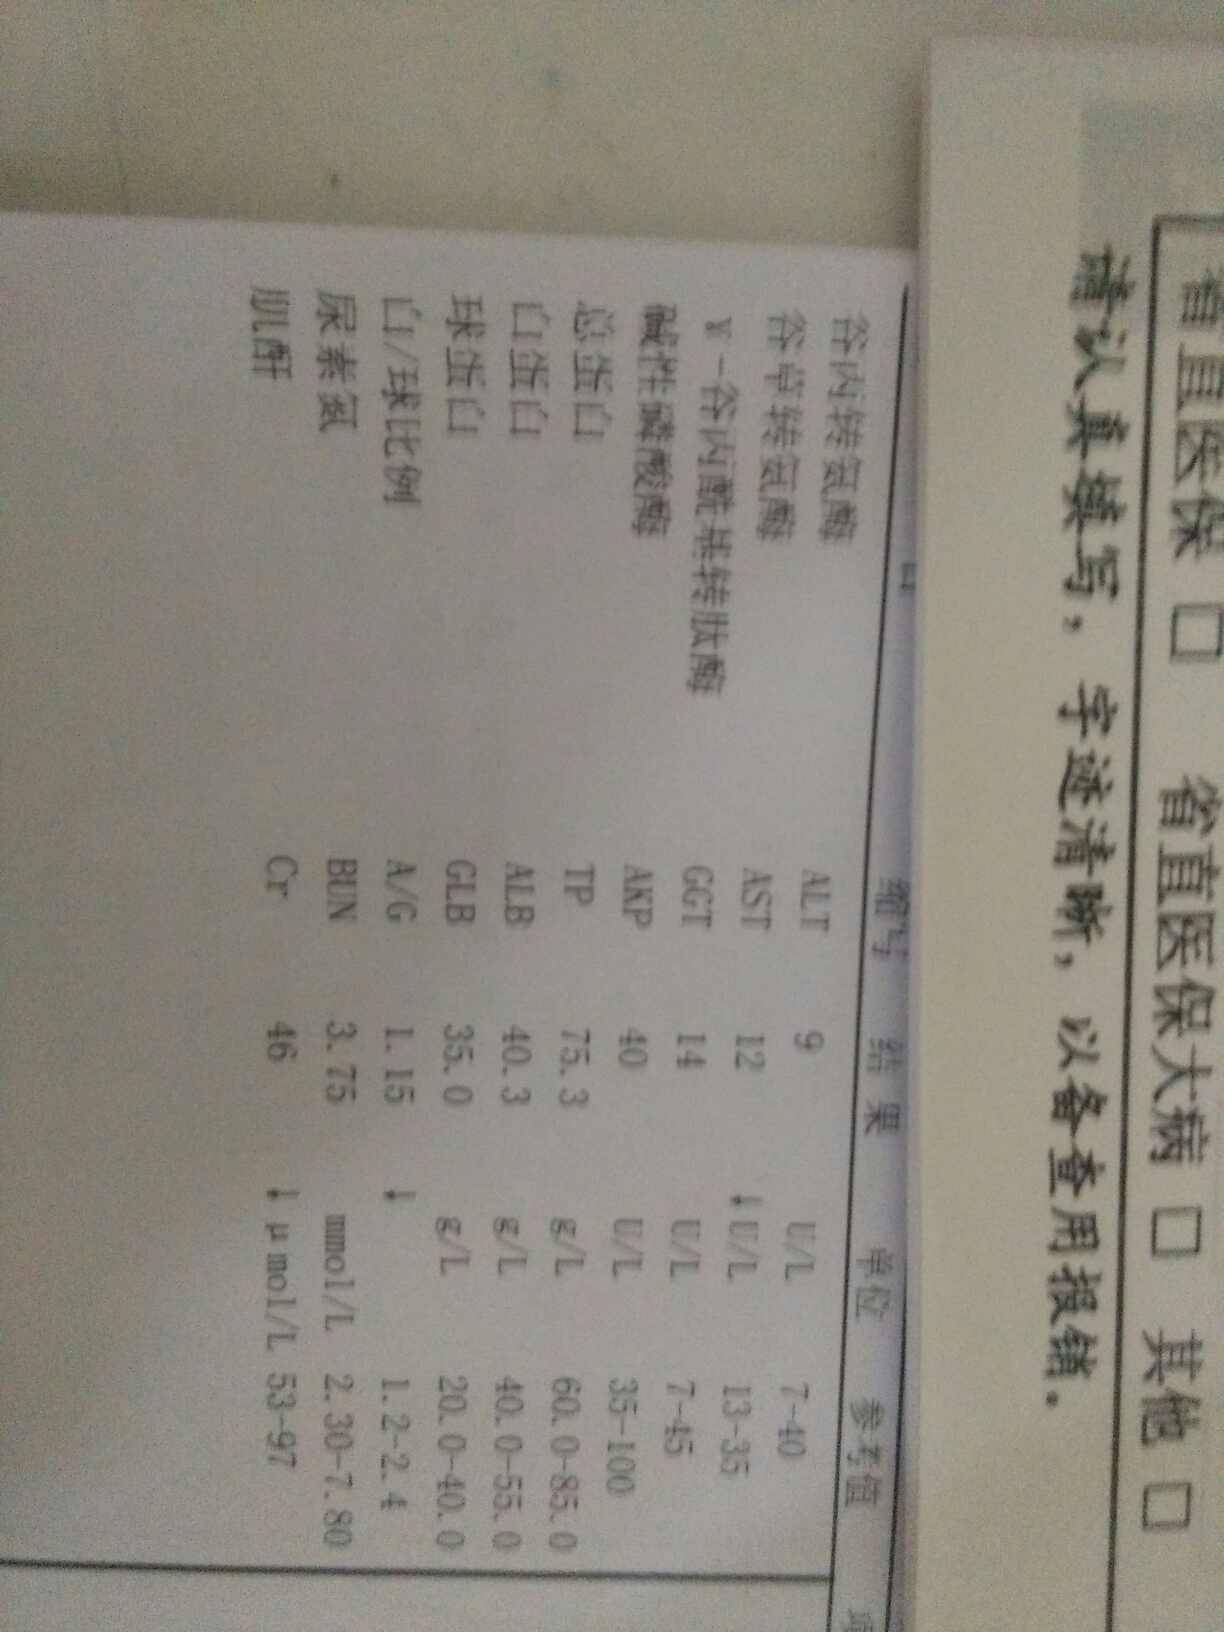 省直医保 □ 省直医保大病 □ 其他 □
请认真填写，字迹清晰，以备查用报销。
缩写 结果 单位 参考值
谷丙转氨酶 ALT 9 U/L 7-40
谷草转氨酶 AST 12 ↓ U/L 13-35
γ-谷丙酰基转肽酶 GGT 14 U/L 7-45
碱性磷酸酶 AKP 40 U/L 35-100
总蛋白 TP 75.3 g/L 60.0-85.0
白蛋白 ALB 40.3 g/L 40.0-55.0
球蛋白 GLB 35.0 g/L 20.0-40.0
白/球比例 A/G 1.15 ↓ 1.2-2.4
尿素氮 BUN 3.75 mmol/L 2.30-7.80
肌酐 Cr 46 ↓ μmol/L 53-97